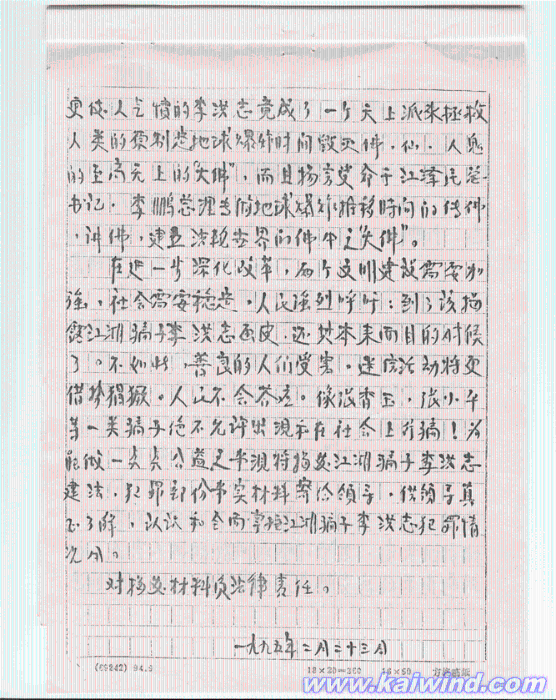 更使人气愤的李洪志竟成了一个天上派来拯救
人类的预制定地球爆炸时间毁灭佛、仙、人鬼
的至高无上的“大佛”，而且扬言受命于江泽民总
书记、李鹏总理去做地球爆炸推移时间的传佛
、讲佛、建立法轮世界的佛中之“大佛”。
在进一步深化改革，两个文明建设需要加
强，社会需要稳定。人民强烈呼吁：到了该揭
露江湖骗子李洪志画皮，还其本来面目的时候
了。不如此，善良的人们受害，迷信活动将更
借掺猖獗。人民不会答应。像张香玉，张小平
等一类骗子绝不允许出现在社会上行骗！为
能做一点点公道是非须将揭发江湖骗子李洪志
违法，犯罪部份事实材料寄给领导，供领导真
正了解，认识和全面掌握江湖骗子李洪志犯罪情
况用。
对揭发材料负法律责任。
一九九五年二月二十三日
(69242) 94.9
www.kaiwind.com